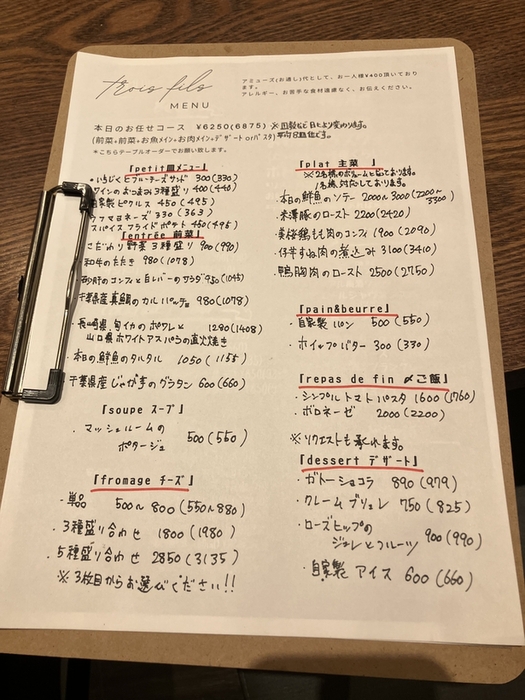 trois fils
MENU
アミューズ(お通し)代として、お一人様¥400頂いており
ます。
アレルギー、お苦手な食材遠慮なく、お伝えください。
本日のお任せコース ¥6250(6875) ※回数など日により変わります。
(前菜+前菜+お魚メイン+お肉メイン+デザート orパスタ) 平均8皿位です。
*こちらテーブルオーダーでお願い致します。
『petit皿メニュー』
・いちじくとブルーチーズサンド 300(330)
ワインのおつまみ3種盛り 400(440)
自家製ピクルス 450(495)
ウフマヨネーズ 330(363)
スパイスフライドポテト 450(495)
『entrée 前菜』
こだわり野菜3種盛り 900(990)
和牛のたたき 980(1078)
砂肝のコンフィと白レバーのサラダ 950(1045)
千葉県産真鯛のカルパッチョ 980(1078)
・長崎県、旬イカのポワレと 1280(1408)
山口県ホワイトアスパラの直火焼き
・本日の鮮魚のタルタル 1050(1155)
・千葉県産じゃが芋のグラタン 600(660)
『soupe スープ』
・マッシュルームの
ポタージュ 500(550)
『fromage チーズ』
・単品 500〜800(550〜880)
・3種盛り合わせ 1800(1980)
・5種盛り合わせ 2850(3135)
※3枚目からお選びください!!
『plat 主菜』
※2名様のボリュームとなっております。
1名様、対応しております。
・本日の鮮魚のソテー 2000〜3000(2200〜3300)
・米澤豚のロースト 2200(2420)
・骨付鴨もも肉のコンフィ 1900(2090)
・仔牛すね肉の煮込み 3100(3410)
・鴨胸肉のロースト 2500(2750)
『pain&beurre』
・自家製パン 500(550)
・ホイップバター 300(330)
『repas de fin 〆ご飯』
・シンプルトマトパスタ 1600(1760)
・ボロネーゼ 2000(2200)
※リクエストも承れます。
『dessert デザート』
・ガトーショコラ 890(979)
・クレームブリュレ 750(825)
・ローズヒップの
ジュレとフルーツ 900(990)
・自家製アイス 600(660)